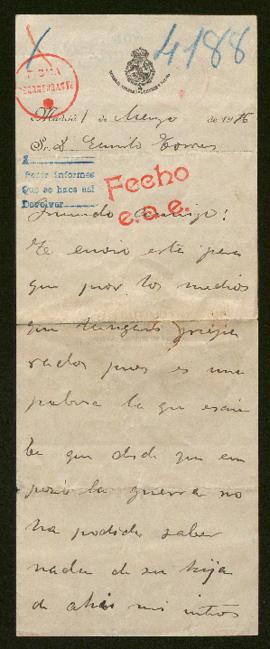 4188
Madrid 1 de Marzo de 1916
Sr. D. Emilio Torres
Pedir informes
Que se hace así
Devolver
Fecho
e.a.e.
Querido amigo!
Te envio esta para
que por los medios
que tengais
pues es una
pobre la que escri
be que desde que em
pezó la guerra no
ha podido saber
nada de su hija
de ahí mi interés